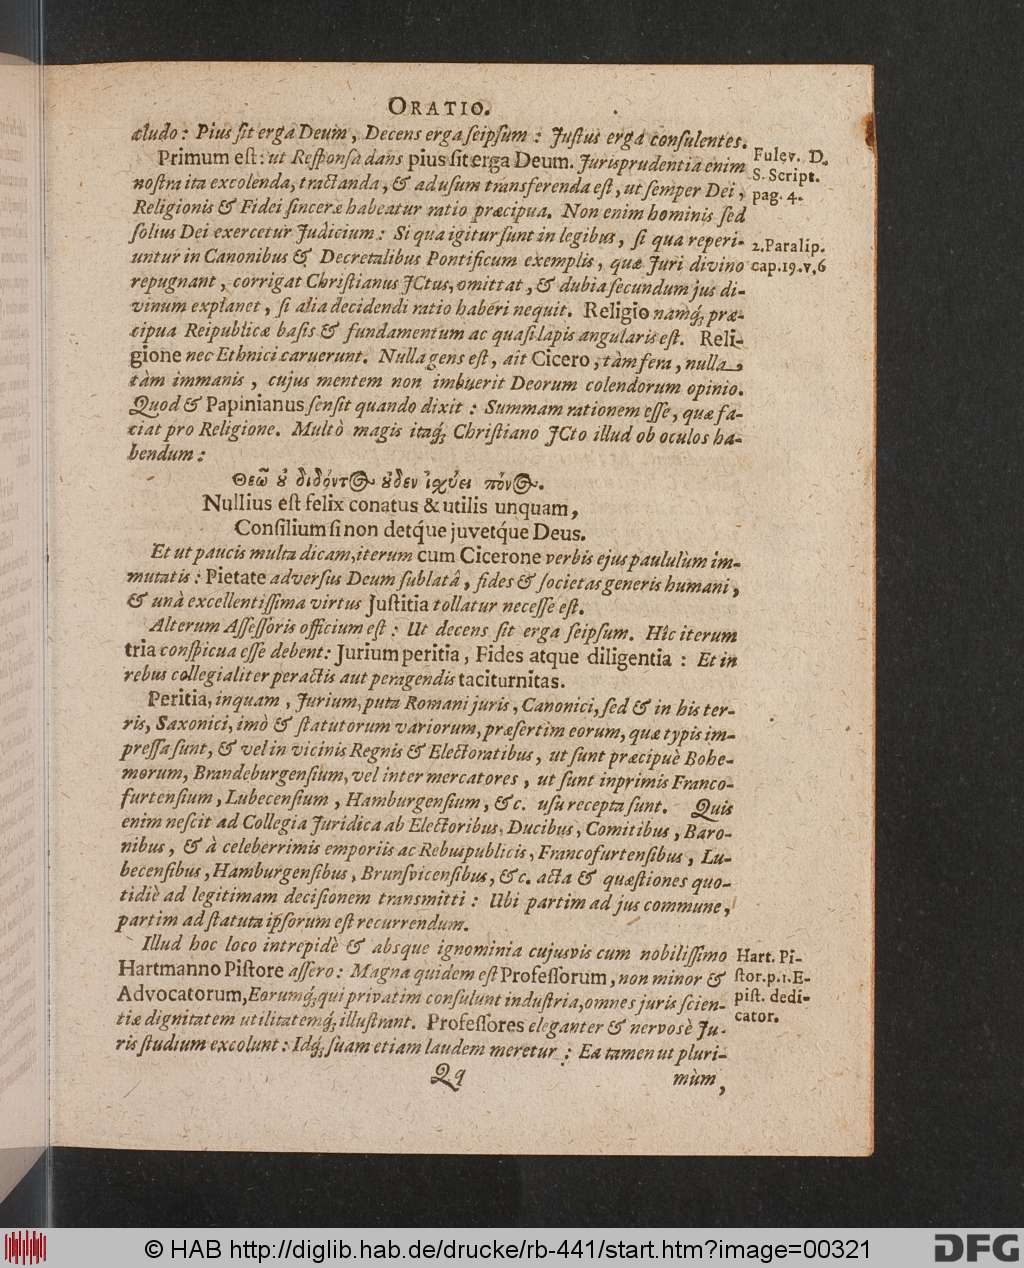 ORATIO.
cludo: Pius ſit erga Deum, Decens erga ſeipſum: Juſtus erga conſulentes.
Primum eſt: ut Reſponſa dans pius ſit erga Deum. Jurisprudentia enim
noſtra ita excolenda, tractanda, & ad uſum transferenda eſt, ut ſemper Dei,
Religionis & Fidei ſinceræ habeatur ratio præcipua. Non enim hominis ſed
ſolius Dei exercetur Judicium: Si qua igitur ſunt in legibus, ſi qua reperi-
untur in Canonibus & Decretalibus Pontificum exemplis, quæ Juri divino
repugnant, corrigat Chriſtianus JCtus, omittat, & dubia ſecundum jus di-
vinum explanet, ſi alia decidendi ratio haberi nequit. Religio namq́; præ-
cipua Reipublicæ baſis & fundamentum ac quaſi lapis angularis eſt. Reli-
gione nec Ethnici caruerunt. Nulla gens eſt, ait Cicero, tàm fera, nulla
tàm immanis, cujus mentem non imbuerit Deorum colendorum opinio.
Quod & Papinianus ſenſit quando dixit: Summam rationem eſſe, quæ fa-
ciat pro Religione. Multò magis itaq́; Chriſtiano JCto illud ob oculos ha-
bendum:
Θεῶ ȣ̓ διδόντ⊙ ȣ̓δεν ἰχύει πόν⊙.
Nullius eſt felix conatus & utilis unquam,
Conſilium ſi non detq́ue juvetq́ue Deus.
Et ut paucis multa dicam, iterum cum Cicerone verbis ejus paululùm im-
mutatis: Pietate adverſus Deum ſublatâ, fides & ſocietas generis humani,
& unà excellentiſſima virtus Juſtitia tollatur neceſſe eſt.
Alterum Aſſeſſoris officium eſt: Ut decens ſit erga ſeipſum. Hîc iterum
tria conſpicua eſſe debent: Jurium peritia, Fides atque diligentia: Et in
rebus collegialiter peractis aut peragendis taciturnitas.
Peritia, inquam, Jurium, puta Romani juris, Canonici, ſed & in his ter-
ris, Saxonici, imò & ſtatutorum variorum, præſertim eorum, quæ typis im-
preſſa ſunt, & vel in vicinis Regnis & Electoratibus, ut ſunt præcipuè Bohe-
morum, Brandeburgenſium, vel inter mercatores, ut ſunt inprimis Franco-
furtenſium, Lubecenſium, Hamburgenſium, &c. uſu recepta ſunt. Quis
enim neſcit ad Collegia Juridica ab Electoribus, Ducibus, Comitibus, Baro-
nibus, & à celeberrimis emporiis ac Rebuspublicis, Francofurtenſibus, Lu-
becenſibus, Hamburgenſibus, Brunſvicenſibus, &c. acta & quæſtiones quo-
tidiè ad legitimam deciſionem transmitti: Ubi partim ad jus commune,
partim ad ſtatuta ipſorum eſt recurrendum.
Illud hoc loco intrepidè & absque ignominia cujusvis cum nobiliſſimo
Hartmanno Piſtore aſſero: Magna quidem eſt Profeſſorum, non minor &
Advocatorum, Eorumq́; qui privatim conſulunt induſtria, omnes juris ſcien-
tiæ dignitatem utilitatemq́; illuſtrant. Profeſſores eleganter & nervosè Ju-
ris ſtudium excolunt: Idq́; ſuam etiam laudem meretur: Ea tamen ut pluri-
Qq mùm,
Fulev. D.
S. Script.
pag. 4.
2. Paralip.
cap. 19. v, 6
Hart. Pi-
ſtor. p. 1. E-
piſt. dedi-
cator.
© HAB http://diglib.hab.de/drucke/rb-441/start.htm?image=00321
DFG